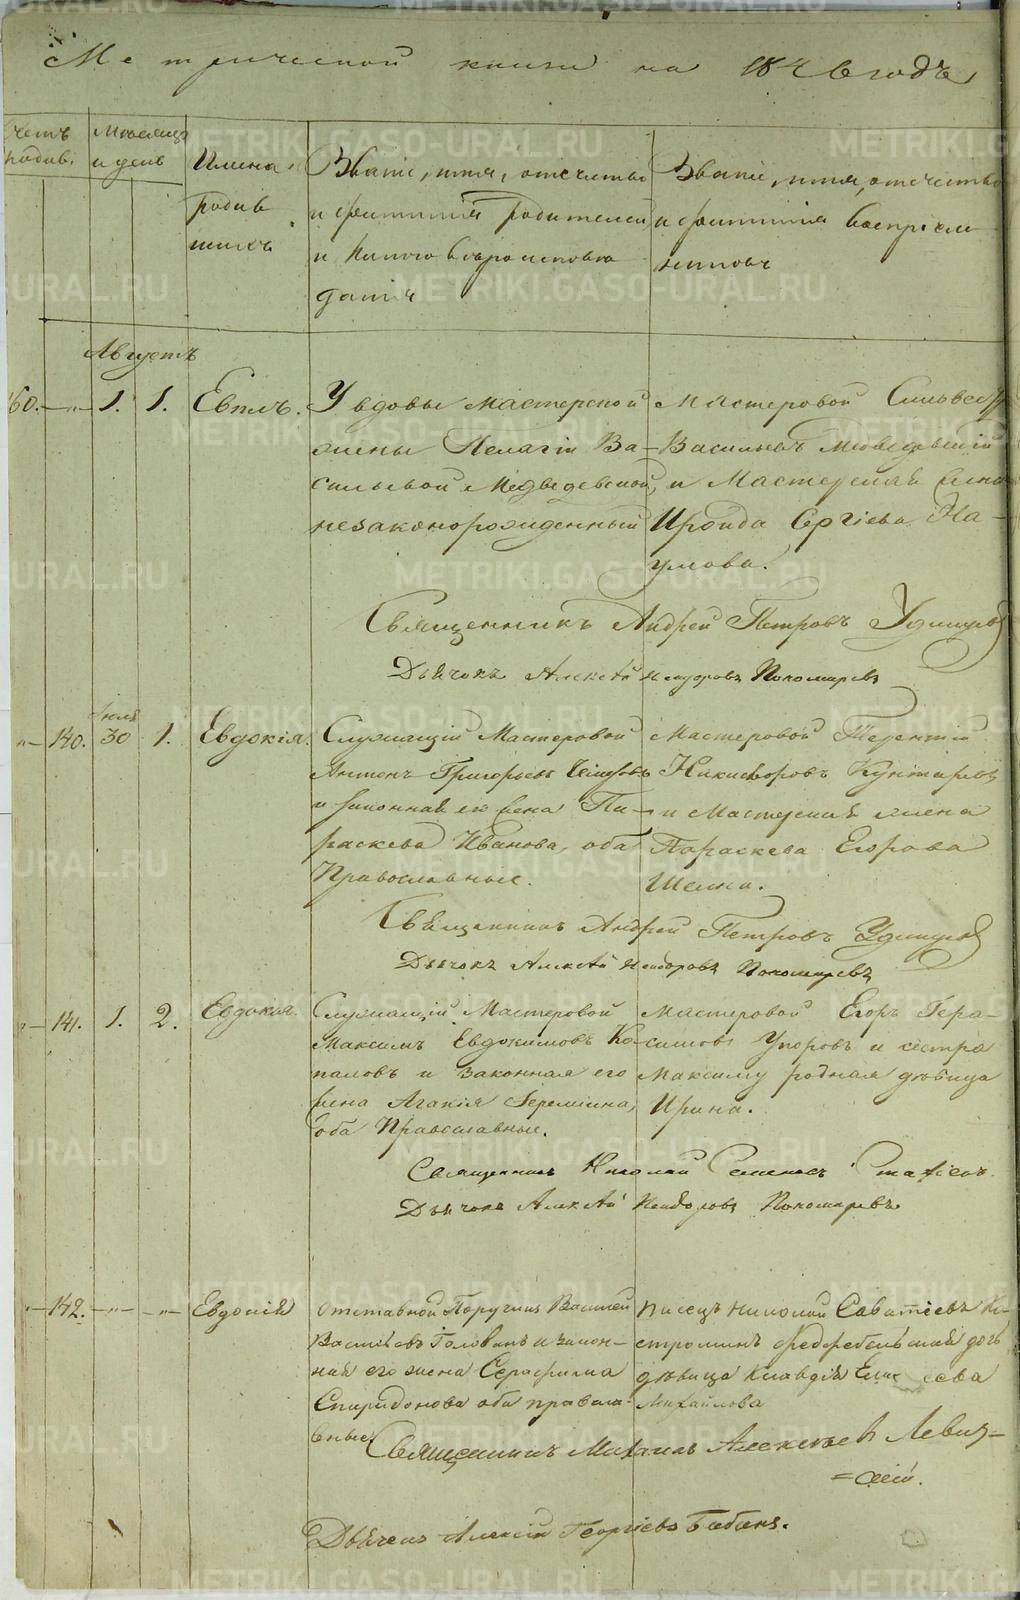 Метрической книги на 1846 годъ
Счетъ
родив.
Месяцъ
и день
Имена
родив
шихся
Званіе, имя, отчество
и фамилія родителей
и какого вероисповѣ
данія
Званіе, имя, отчество
и фамилія воспріем
никовъ
Августъ
160. —„— 1. 1. Евплъ.
У вдовы мастерской
жены Пелагіи Ва-
сильевой Медведевской,
незаконорожденный
Мастеровой Сильвестр
Васильевъ Медведевскій
и Мастерская жена
Ироида Сергіева На-
умова.
Священникъ Андрей Петровъ Удинцевъ
Дьячокъ Алексѣй Исидоровъ Пономаревъ
„— 140. Іюля 30 1. Евдокія.
Служащій Мастеровой
Антонъ Григорьевъ
и законная его жена Па-
раскева Иванова, оба
Православные.
Мастеровой Терентій
Никифоровъ Кунгаревъ
и Мастерская жена
Параскева Егорова
Шеина.
Священникъ Андрей Петровъ Удинцевъ
Дьячокъ Алексѣй Исидоровъ Пономаревъ
„— 141. 1. 2. Евдокія.
Служащій Мастеровой
Максимъ Евдокимовъ Ко-
паловъ и законная его
жена Агапія Еремѣина,
оба Православные.
Мастеровой Егоръ Гера-
симовъ Упоровъ и сестра
Максиму родная дѣвица
Ирина.
Священникъ Николай Семеновъ
Дьячокъ Алексѣй Исидоровъ Пономаревъ
„— 142. —„— —„— Евдокія
Отставной Поручикъ Василій
Васильевъ Голованъ и закон-
ная его жена Серафима
Спиридонова оба правосла-
вные
Писецъ Николай Саватіевъ Ко-
строминъ дочь
дѣвица Клавдія
Михайлова
Священникъ Михаилъ Алексѣевъ Левиц-
=кій.
Дьячекъ Алексій Георгіевъ Бабинъ.
METRIKI.GASO-URAL.RU